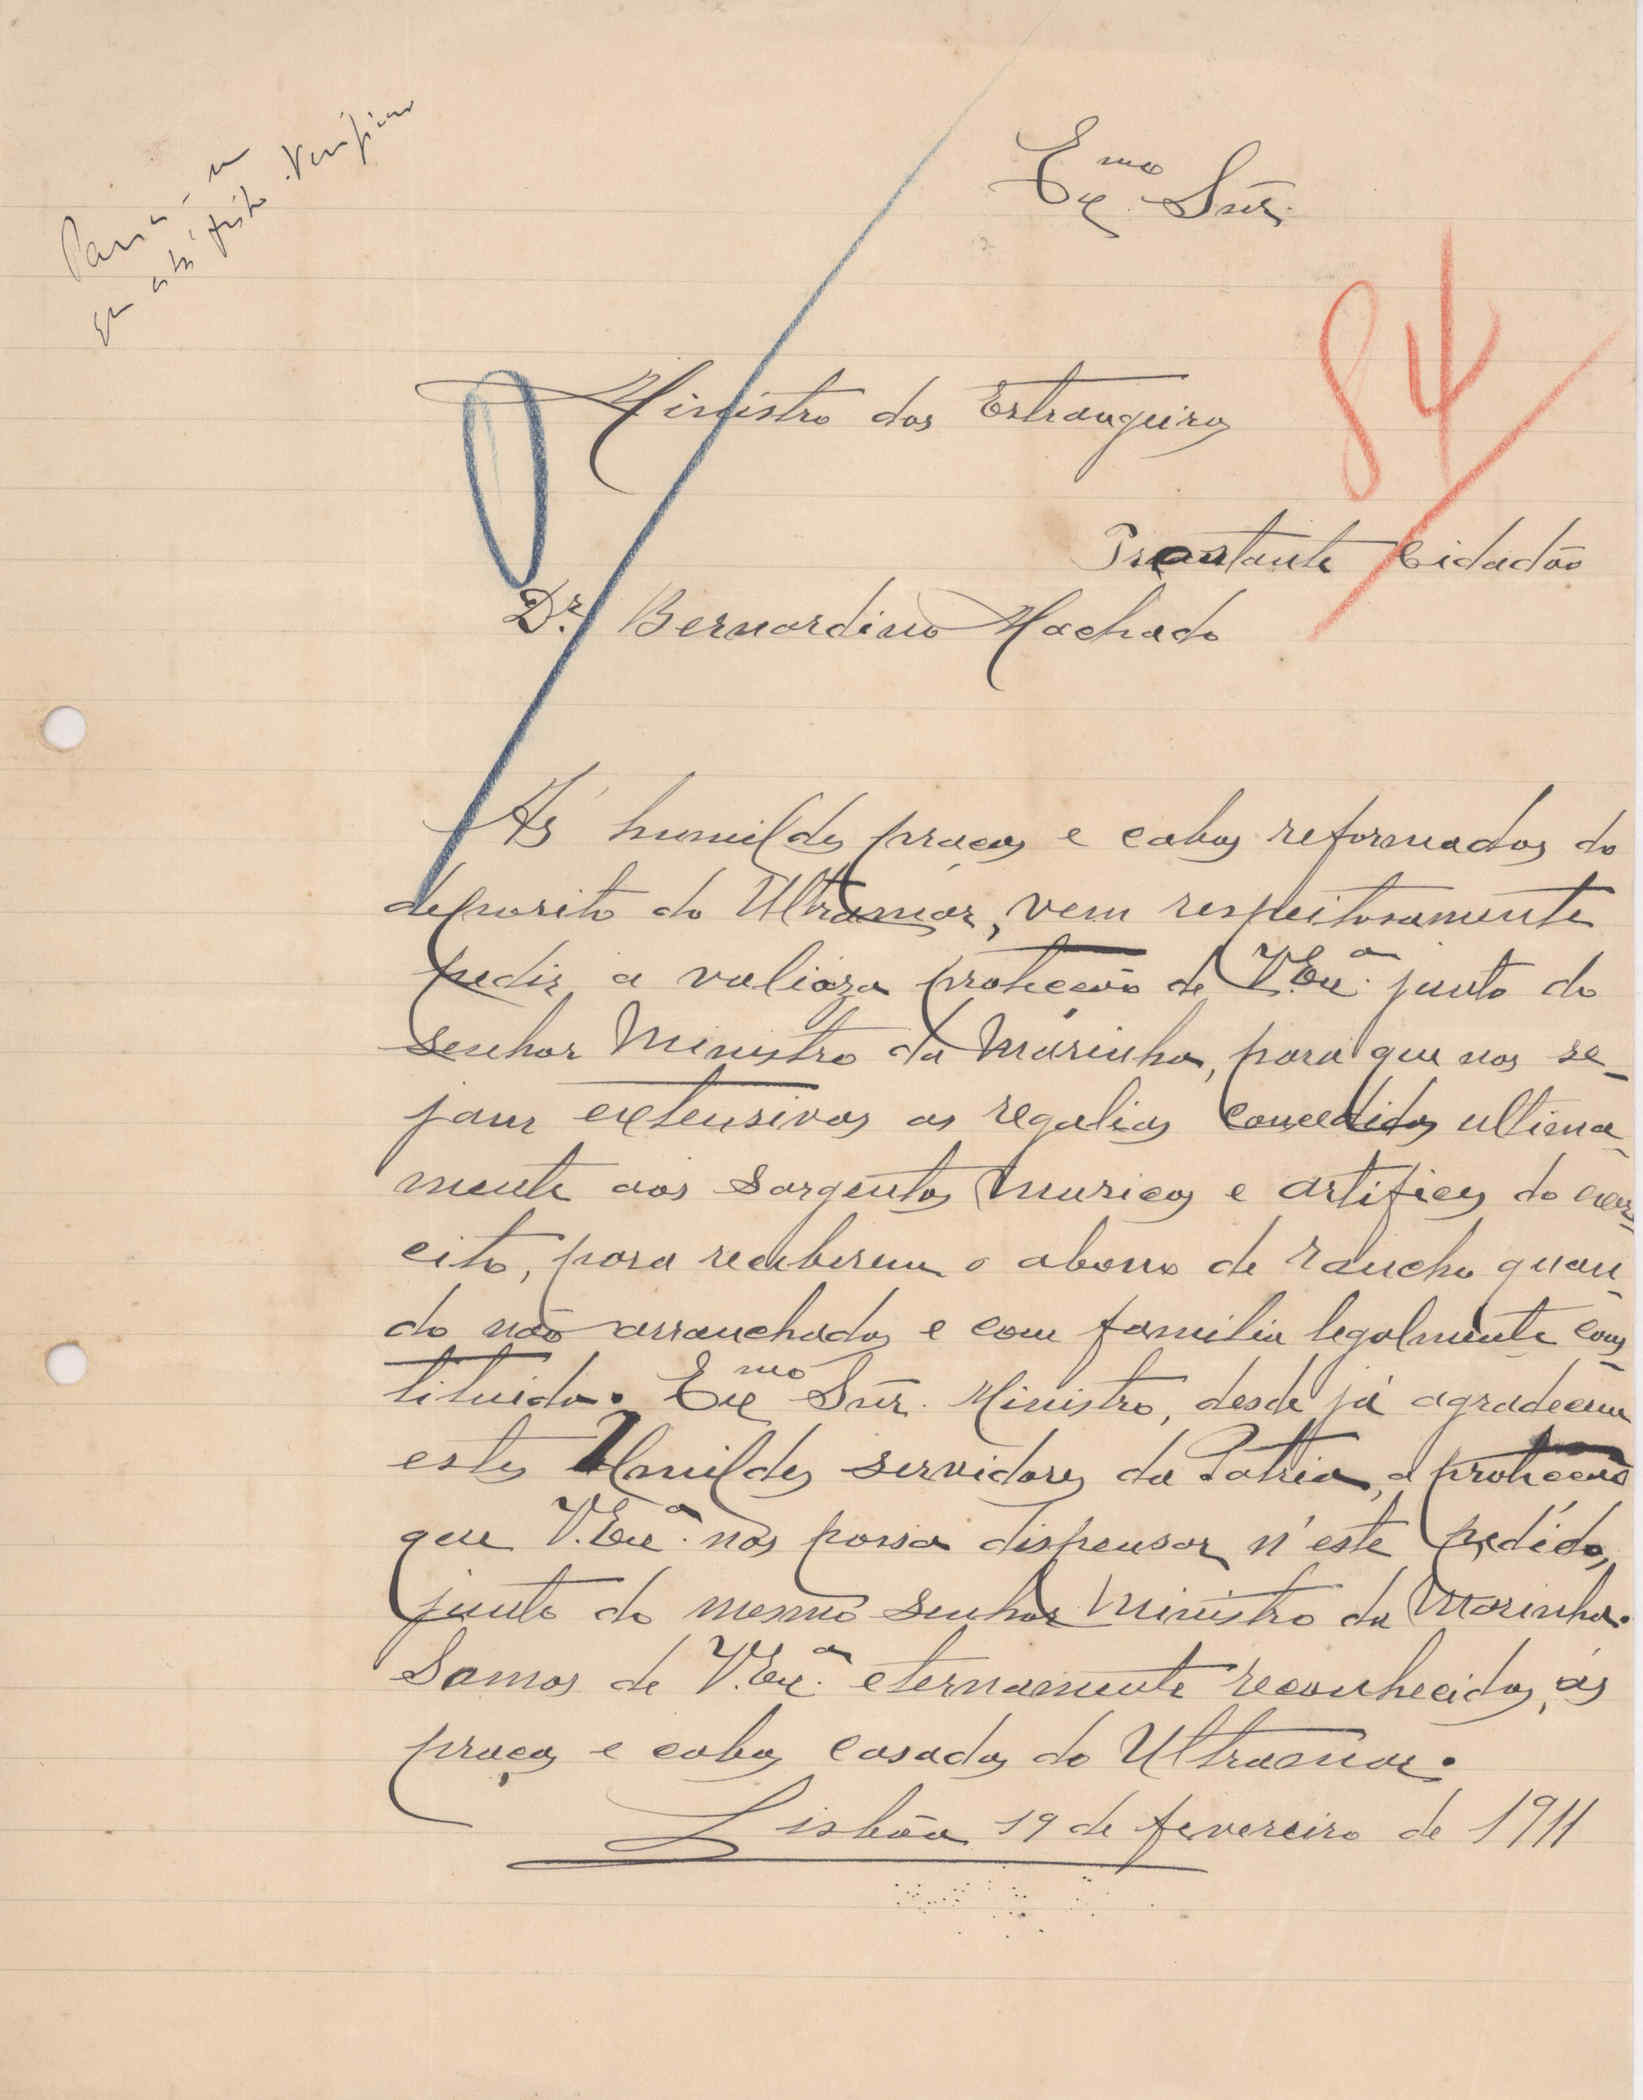 Parece-me
que está feito. Verificar
Ex.mo Snr.
84
Ministro dos Estrangeiros
Prestante Cidadão
Dr. Bernardino Machado
As humildes praças e cabos reformados do
deposito do Ultramar, vem respeitosamente
pedir a valioza protecção de V. Ex.ª junto do
senhor Ministro da Marinha, para que nos se-
jam extensivas as regalias concedidas ultima-
mente aos sargentos musicos e artifices do exer-
cito, para receberem o abono de rancho quan-
do não arranchados e com familia legalmente cons-
tituida. Ex.mo Snr. Ministro, desde já agradecem
estes Humildes servidores da Patria, a protecção
que V. Ex.ª nos possa dispensar n'este pedido,
junto do mesmo senhor Ministro da Marinha.
Somos de V. Ex.ª eternamente reconhecidos, ás
praças e cabos casados do Ultramar.
Lisbôa 19 de fevereiro de 1911